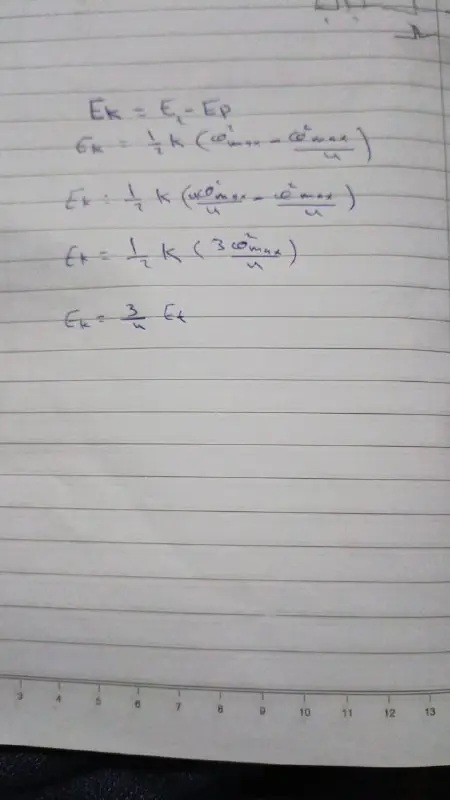 Ek = Et - Ep
Ek = 1/2 k (x²max - x²max/4)
Ek = 1/2 k (4x²max/4 - x²max/4)
Ek = 1/2 k (3x²max/4)
Ek = 3/4 Et
3 4 5 6 7 8 9 10 11 12 13